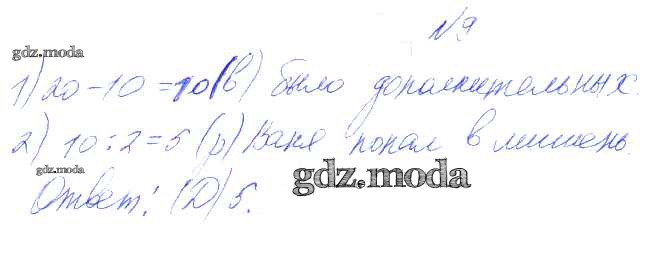 №9
gdz.moda
1) 20-10=10(в) было дополнительных.
2) 10:2=5 (р) Ваня попал в мишень.
gdz.moda
gdz.moda
Ответ: (D) 5.